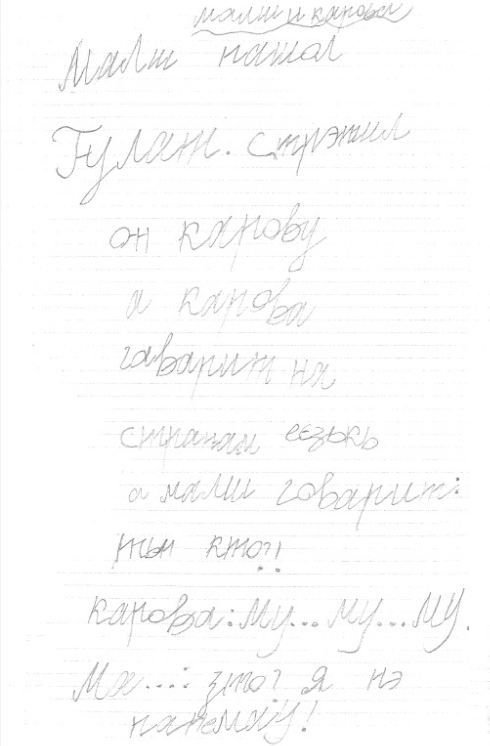 малш и карова
Малш пашол
Гулат. стрэтил
он карову
а карова
гаварит на
странам еезькь
а малш говорит:
ты кто?!
карова: Му... му... му.
Ма...: што? я нэ
панемаху!